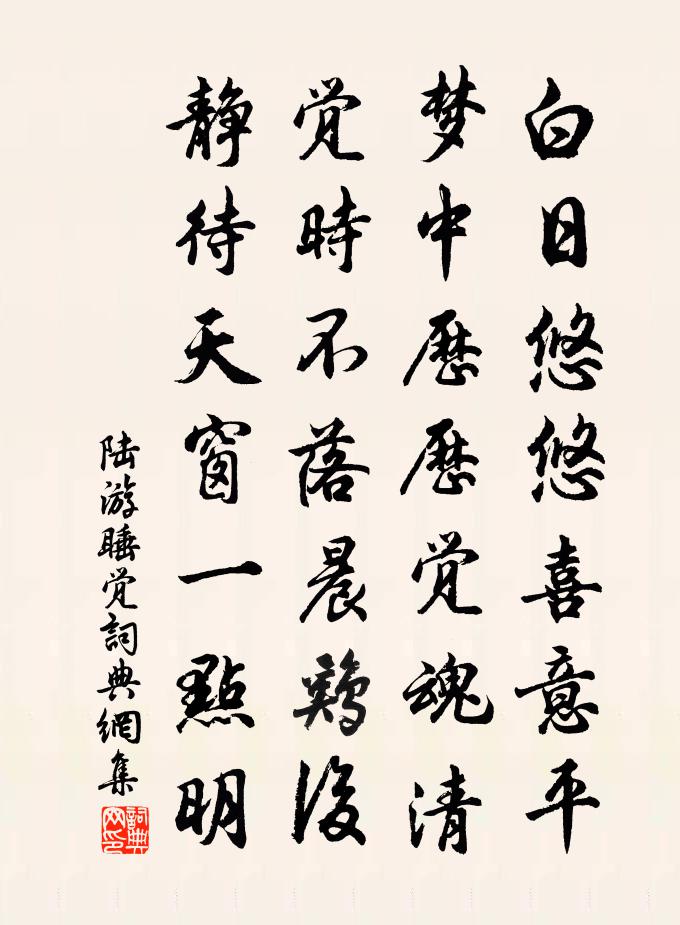 白日悠悠喜意平
梦中歷歷覚魂清
覚時不落晨鷄後
静待天窗一點明
陆游睡覚詞典網集
詞典网印